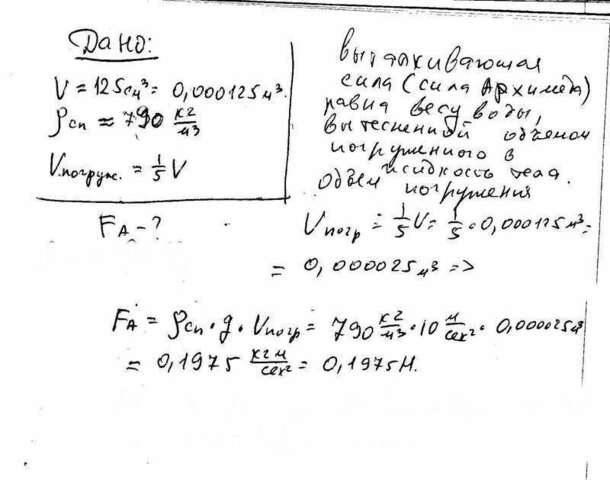 Дано:
V = 125см³ = 0,000125м³.
ρсп ≈ 790 кг/м³
Vпогруж. = 1/5 V
FA - ?
выталкивающая
сила (сила Архимеда)
равна весу воды,
вытесненной объемом
погруженного в
жидкость тела.
Объем погружения
Vпогр = 1/5 V = 1/5 · 0,000125м³ =
= 0,000025м³ =>
FA = ρсп · g · Vпогр = 790 кг/м³ · 10 м/сек² · 0,000025м³
= 0,1975 кг м/сек² = 0,1975Н.